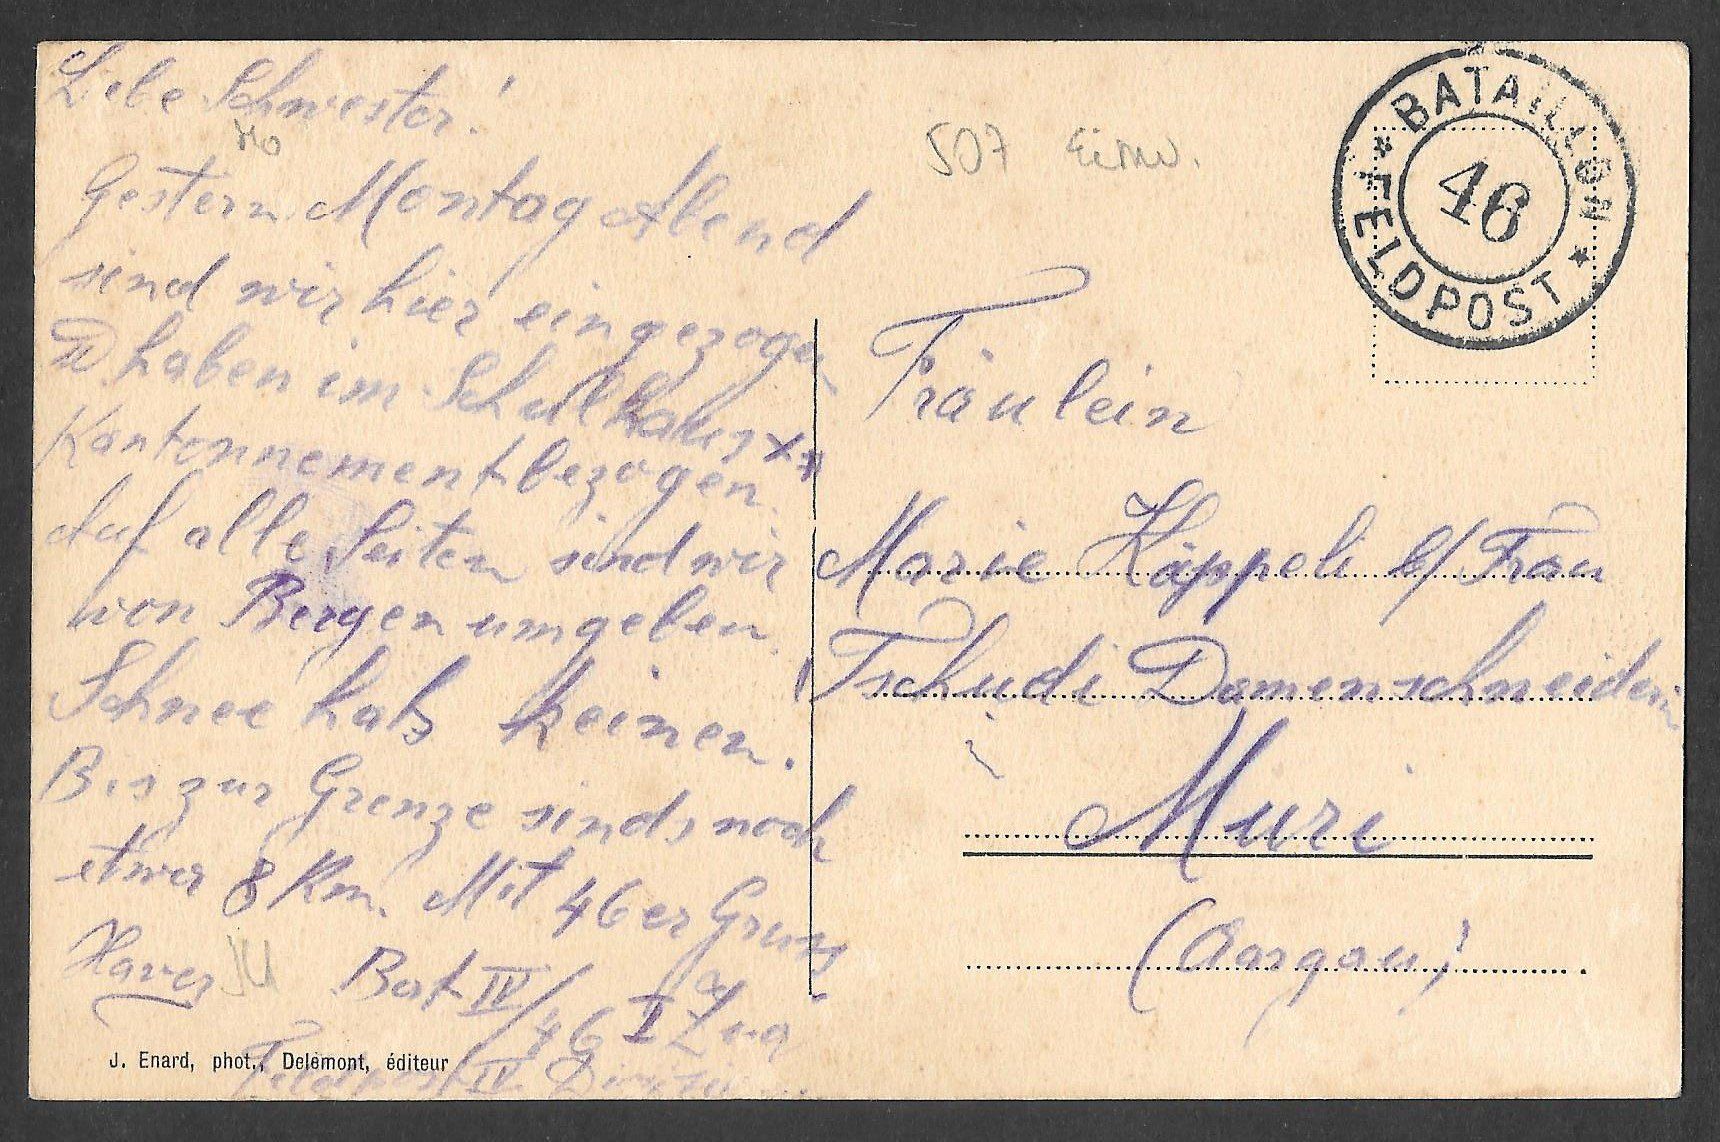 Liebe Schwester!
Gestern Montag Abend
sind wir hier eingezogen
& haben im Schulhaus x
Kantonnement bezogen.
Auf alle Seiten sind wir
von Bergen umgeben.
Schnee hats keinen.
Bis zur Grenze sinds noch
etwa 8 Km. Mit 46er Gruss
Xaver Bat IV/46 I Zug
Feldpost IV
J. Enard, phot., Delémont, éditeur
507
BATAILLON
46
* FELDPOST *
Fräulein
Marie Käppeli b/ Frau
Tschudi Damenschneiderin
Muri
(Aargau)